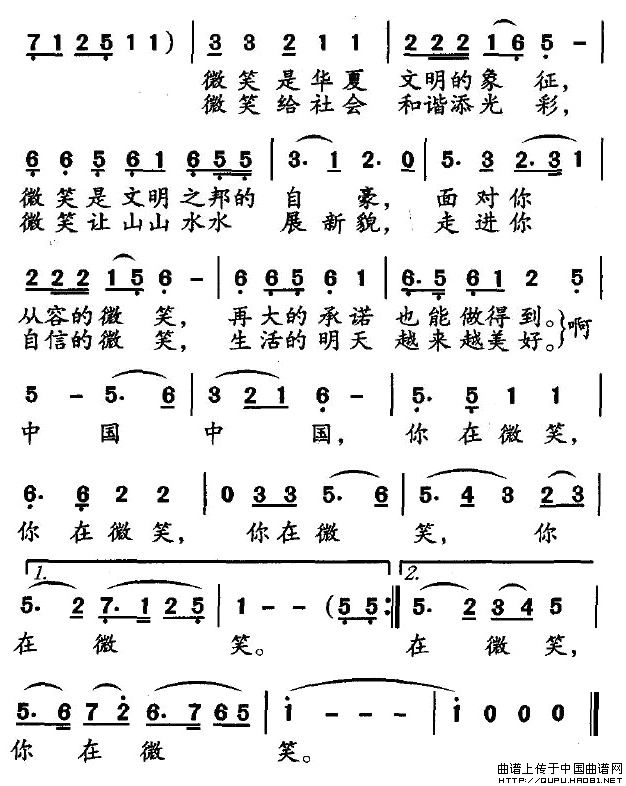 7 1 2 5 1 1 ) | 3 3 2 1 1 | 2 2 2 1 6 5 - |
微笑是华夏 文明的象 征，
微笑给社会 和谐添光 彩，
6 6 5 6 1 6 5 5 | 3· 1 2· 0 | 5· 3 2·3 1 |
微笑是文明之邦的 自 豪， 面对你
微笑让山山水水 展新貌， 走进你
2 2 2 1 5 6 - | 6 6 5 6 1 | 6· 5 6 1 2 5 |
从容的微 笑， 再大的承诺 也能做得到。
自信的微 笑， 生活的明天 越来越美好。 } 啊
5 - 5· 6 | 3 2 1 6 - | 5· 5 1 1 |
中 国 中 国， 你在微笑，
6· 6 2 2 | 0 3 3 5· 6 | 5· 4 3 2 3 |
你 在微笑， 你在微 笑， 你
1. 2.
5· 2 7· 1 2 5 | 1 - - ( 5 5 :‖ 5· 2 3 4 5 |
在 微 笑。 在 微笑，
5· 6 7 2 6· 7 6 5 | i - - - | i 0 0 0 ‖
你 在 微 笑。
曲谱上传于中国曲谱网
HTTP://QUPU.HAO81.NET